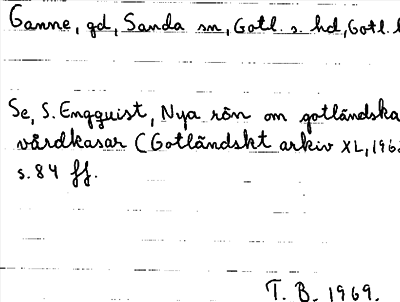 Ganne, gd, Sanda sn, Gotl. s. hd, Gotl. l
Se, S. Engquist, Nya rön om gotländska
vårdkasar (Gotländskt arkiv XL, 196
s. 84 ff.
T. B. 1969.